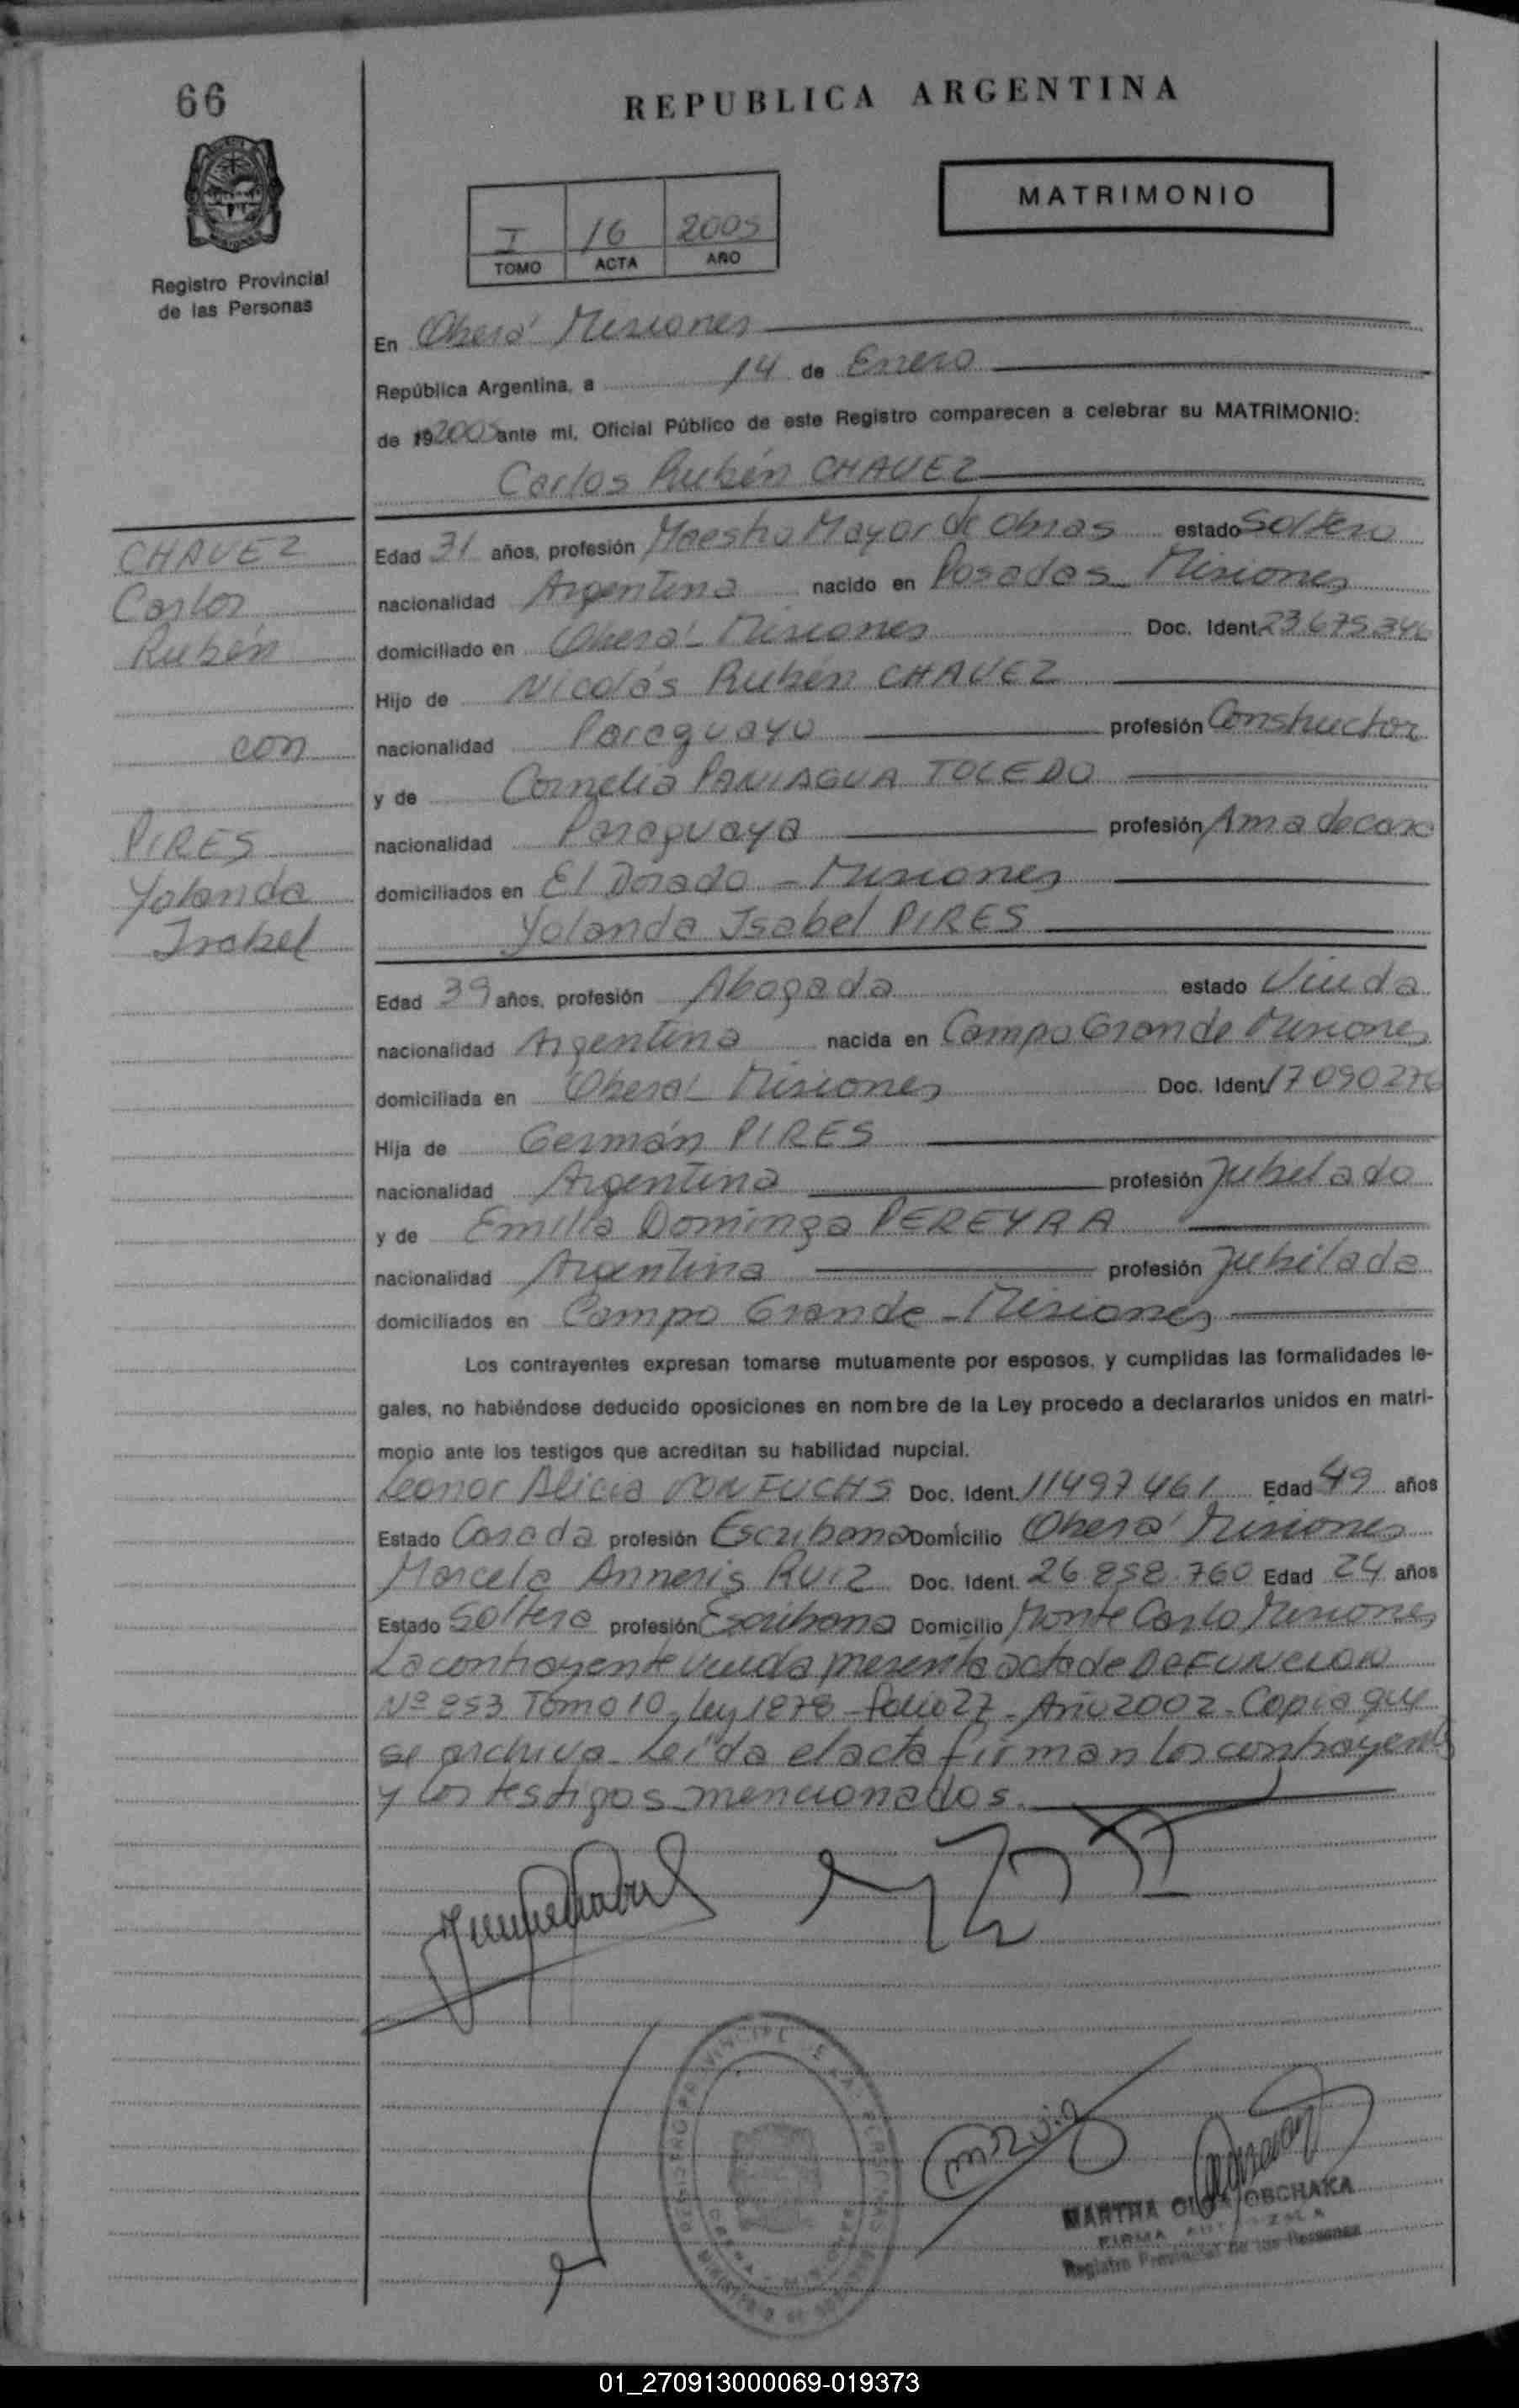 66
REPUBLICA ARGENTINA
MATRIMONIO
I 16 2005
TOMO ACTA AÑO
Registro Provincial
de las Personas
En Oberá Misiones
República Argentina, a 14 de Enero
de 192005 ante mi, Oficial Público de este Registro comparecen a celebrar su MATRIMONIO:
Carlos Rubén CHAVEZ
CHAVEZ
Carlos
Rubén
con
PIRES
Yolanda
Isabel
Edad 31 años, profesión Maestro Mayor de Obras estado Soltero
nacionalidad Argentina nacido en Posadas Misiones
domiciliado en Oberá Misiones Doc. Ident. 23.675.346
Hijo de Nicolás Rubén CHAVEZ
nacionalidad Paraguayo profesión Constructor
y de Cornelia PANIAGUA TOLEDO
nacionalidad Paraguaya profesión Ama de casa
domiciliados en El Dorado - Misiones
Yolanda Isabel PIRES
Edad 39 años, profesión Abogada estado Viuda
nacionalidad Argentina nacida en Campo Grande Misiones
domiciliada en Oberá Misiones Doc. Ident. 17090276
Hija de Germán PIRES
nacionalidad Argentina profesión Jubilado
y de Emilia Dominga PEREYRA
nacionalidad Argentina profesión Jubilada
domiciliados en Campo Grande - Misiones
Los contrayentes expresan tomarse mutuamente por esposos, y cumplidas las formalidades le-
gales, no habiéndose deducido oposiciones en nombre de la Ley procedo a declararlos unidos en matri-
monio ante los testigos que acreditan su habilidad nupcial.
Leonor Alicia VON FUCHS Doc. Ident. 11497461 Edad 49 años
Estado Casada profesión Escribana Domicilio Oberá Misiones
Marcela Anneris RUIZ Doc. Ident. 26.858.760 Edad 24 años
Estado Soltera profesión Escribana Domicilio Monte Carlo Misiones
La contrayente viuda presenta acta de DEFUNCION
Nº 853 Tomo 10, Ley 1878 - Folio 27 - Año 2002 - Copia que
se archiva. Leída el acta firman los contrayentes
y los testigos mencionados.
MARTHA OLGA
FIRMA AUTORIZADA
Registro Provincial de las Personas
01_270913000069-019373